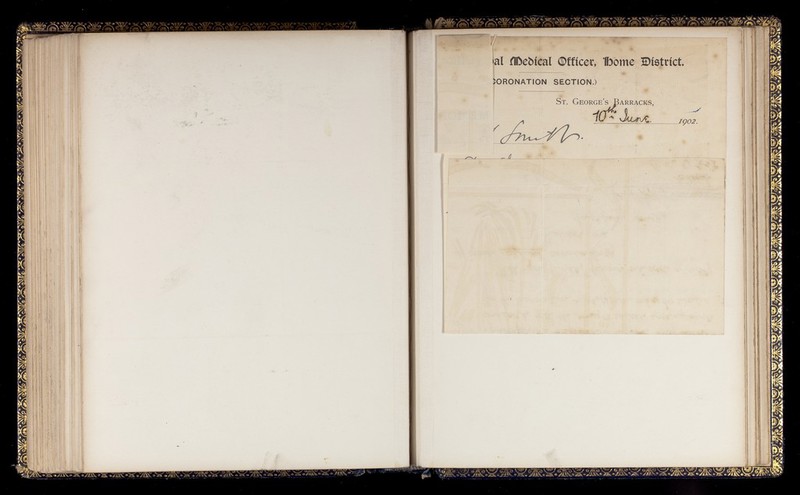 al Medical Officer, Home District.
CORONATION SECTION.)
St. George's Barracks,
10th June 1902.
Smith.